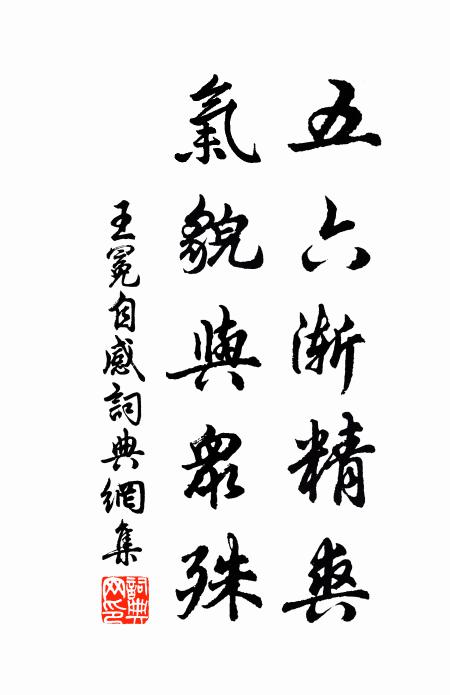 五六漸精爽
氣貌與眾殊
王冕自感詞典網集
詞典網印